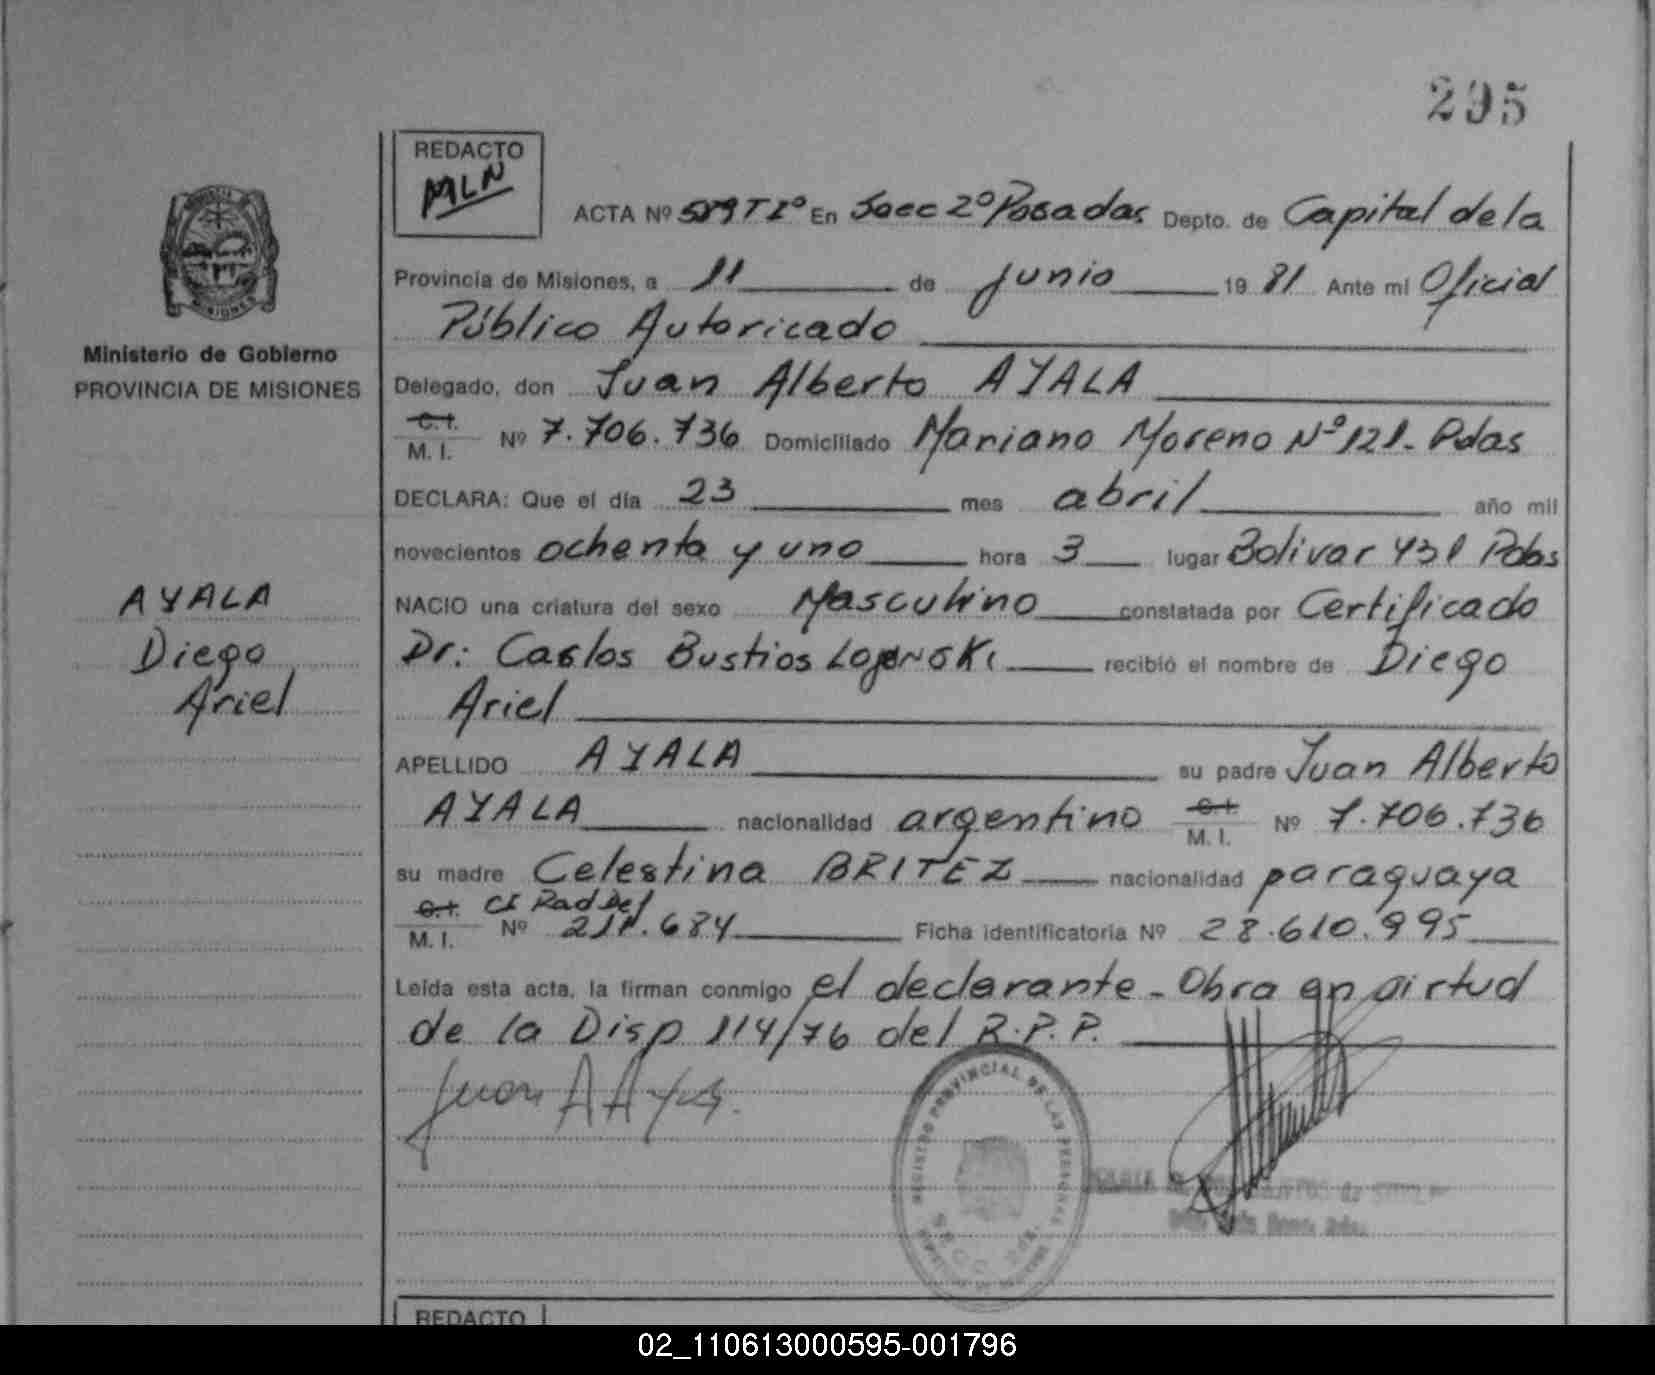 295
REDACTO
MLN
ACTA Nº TIº En Secc 2º Posadas Depto. de Capital de la
Provincia de Misiones, a 11 de junio 19 81 Ante mi Oficial
Público Autoricado
Ministerio de Gobierno
PROVINCIA DE MISIONES
Delegado, don Juan Alberto AYALA
C.I. M. I. Nº 7.706.736 Domiciliado Mariano Moreno Nº 121- Pdas
DECLARA: Que el día 23 mes abril año mil
novecientos ochenta y uno hora 3 lugar Bolivar 431 Pdas
AYALA
Diego
Ariel
NACIO una criatura del sexo Masculino constatada por Certificado
Dr: Carlos Bustios recibió el nombre de Diego
Ariel
APELLIDO AYALA su padre Juan Alberto
AYALA nacionalidad argentino C.I. M. I. Nº 7.706.736
su madre Celestina BRITEZ nacionalidad paraguaya
C.I. M. I. CI Pad Del Nº 211.684 Ficha identificatoria Nº 28.610.995
Leída esta acta, la firman conmigo el declarante - Obra en virtud
de la Disp 114/76 del R.P.P.
Juan A Ayala
REGISTRO PROVINCIAL DE LAS PERSONAS
SECC. 2da.
REDACTO
02_110613000595-001796